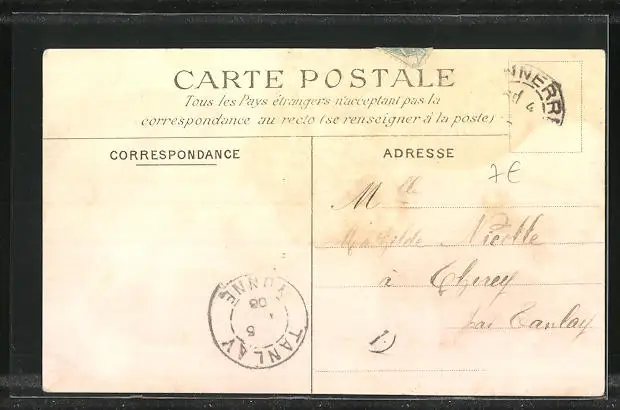 CARTE POSTALE
Tous les Pays étrangers n'acceptant pas la
correspondance au recto (se renseigner à la poste)
NNERRE
4
CORRESPONDANCE
ADRESSE
7€
Mlle
Mathilde Nicolle
à Thorey
par Tanlay
TANLAY
YONNE
5
08
1